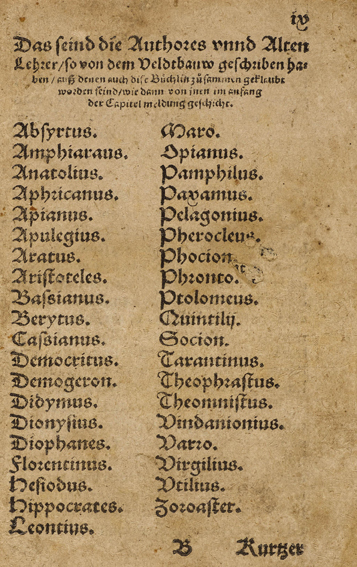 ix
Das seind die Authores vnnd Alten
Lehrer / so von dem Veldtbauw geschriben ha-
ben / auß denen auch dise Büchlin zůsammen geklaubt
worden seind / wie dann von jnen im anfang
der Capitel meldung geschicht.
Absyrtus.
Amphiaraus.
Anatolius.
Aphricanus.
Apianus.
Apulegius.
Aratus.
Aristoteles.
Bassianus.
Berytus.
Cassianus.
Democritus.
Demogeron.
Didymus.
Dionysius.
Diophanes.
Florentinus.
Hesiodus.
Hippocrates.
Leontius.
Maro.
Opianus.
Pamphilus.
Paxamus.
Pelagonius.
Pherocleus.
Phocion.
Phronto.
Ptolomeus.
Quintilij.
Socion.
Tarantinus.
Theophrastus.
Theomnistus.
Vindanionius.
Varro.
Virgilius.
Vtilius.
Zoroaster.
B Kurtzer